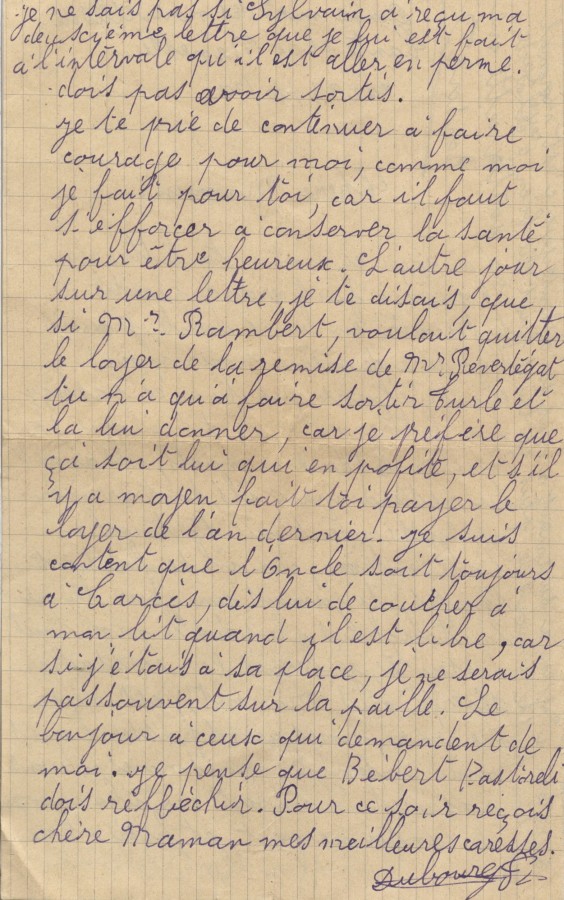 je ne sais pas si Sylvain a reçu ma
deuscième lettre que je lui est fait
à l'intervale qu'il est aller en perme.
dois pas avoir sortis.
je te prie de continuer à faire
courage pour moi, comme moi
je fait pour toi, car il faut
s'efforcer à conserver la santé
pour être heureux. L'autre jour
sur une lettre, je te disais, que
si Mr. Rambert, voulait quitter
le loyer de la remise de Mr. Revertégat
tu n'a qu'à faire sortir Turle et
la lui donner, car je préfère que
ça soit lui qui en pofite, et s'il
y a moyen fait toi payer le
loyer de l'an dernier. je suis
content que l'Oncle soit toujours
à Carcès, dis lui de coucher à
mon lit quand il est libre, car
si j'étais à sa place, je ne serais
pas souvent sur la paille. Le
bonjour à ceux qui demandent de
moi. je pense que Bébert Pastoreli
dois refléchir. Pour ce soir reçois
chère Maman mes meilleures caresses.
Dubourg